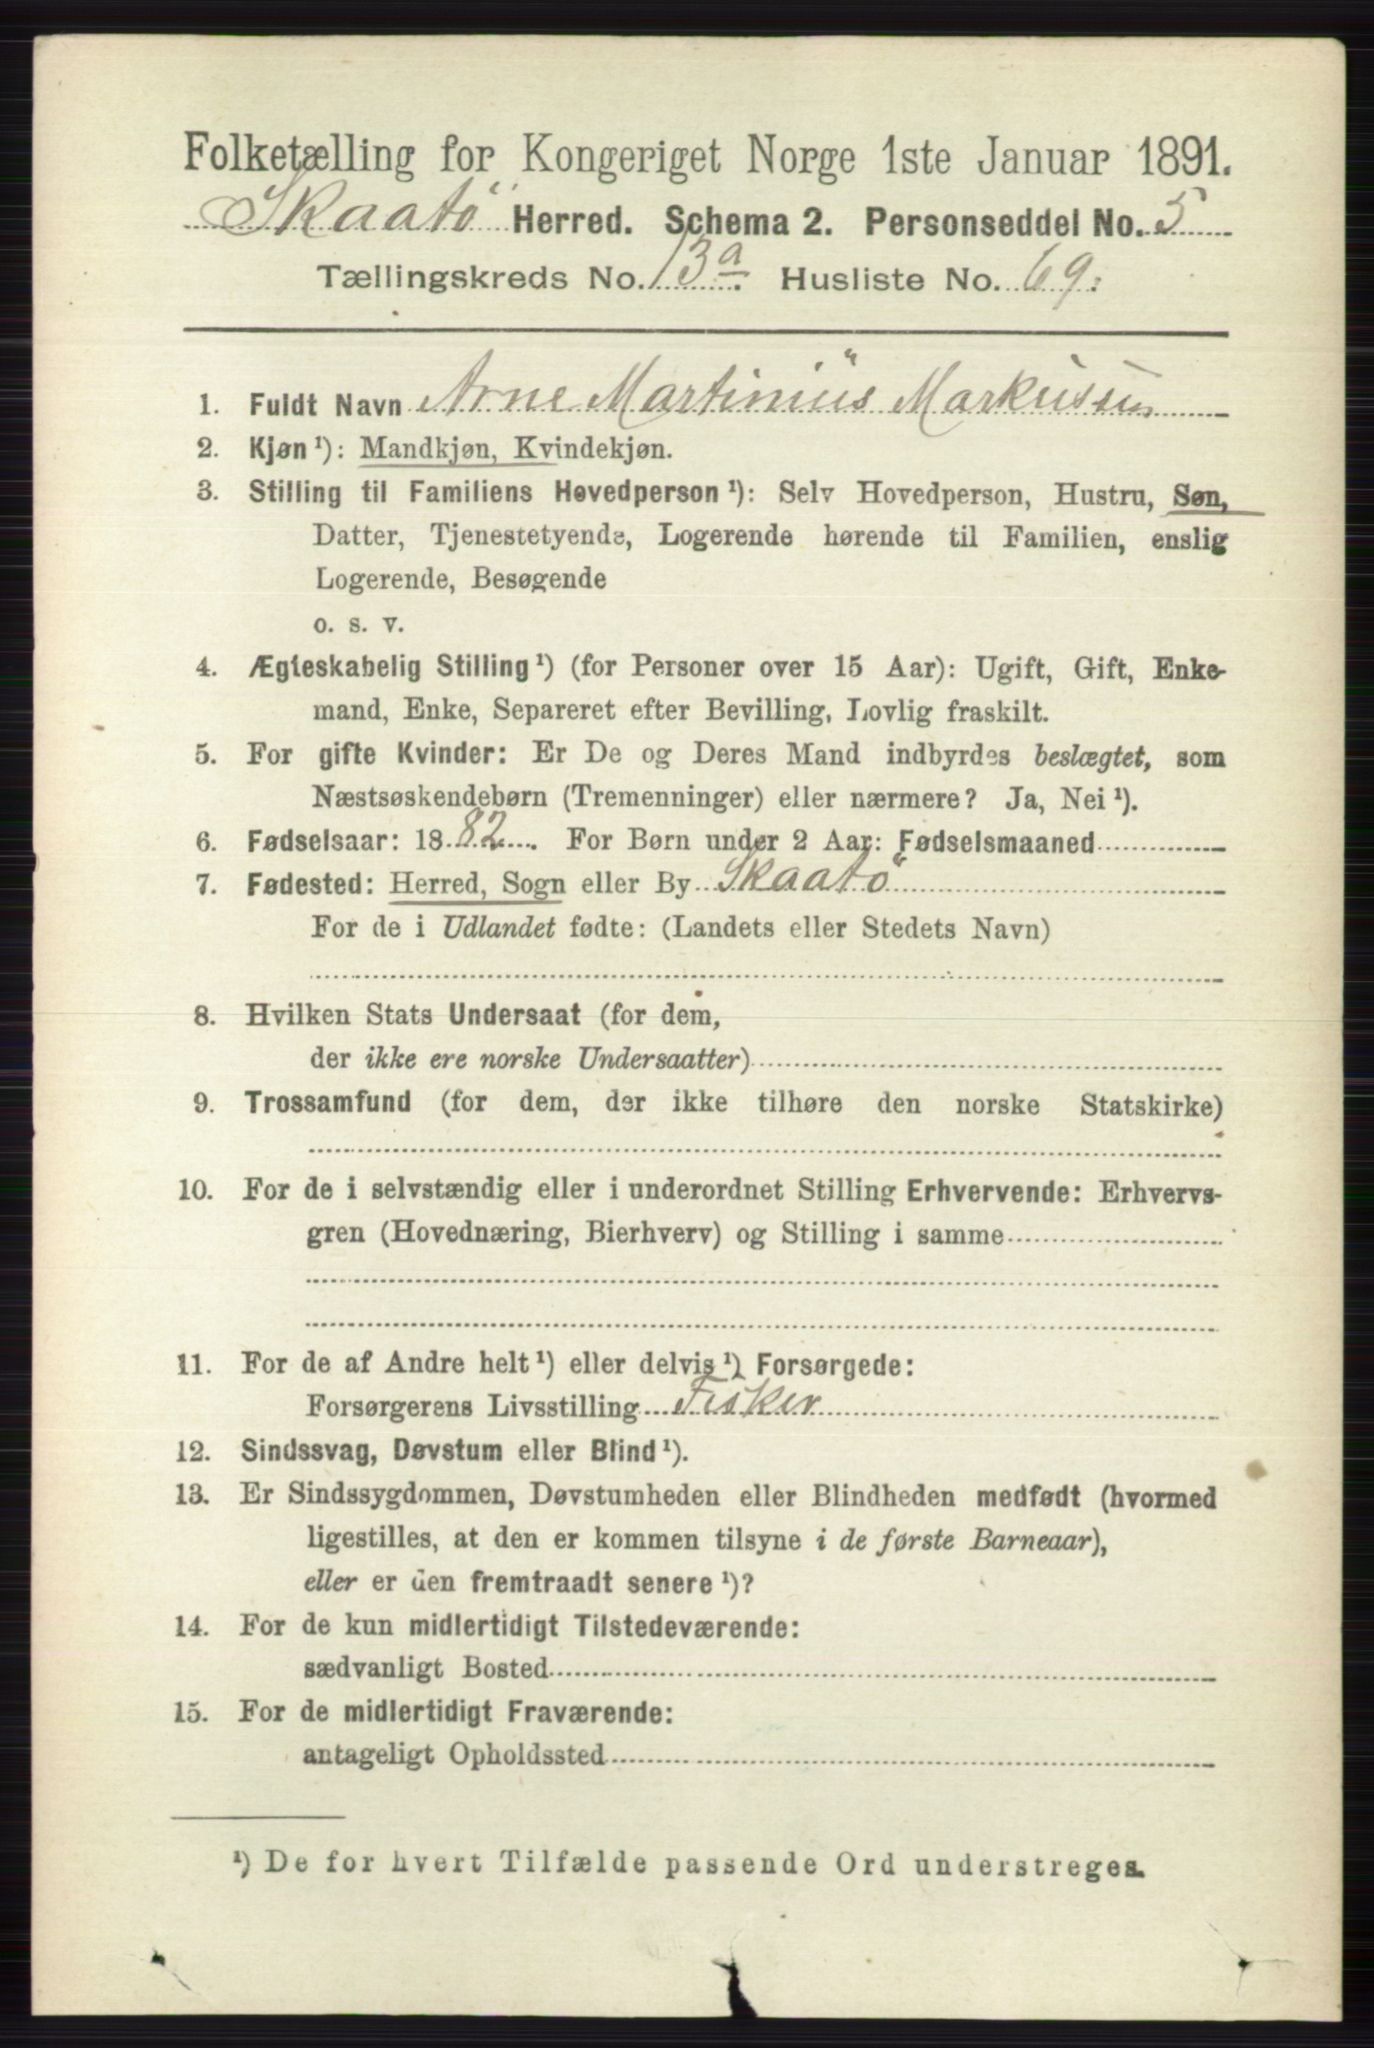 Folketælling for Kongeriget Norge 1ste Januar 1891.
Skaatö Herred. Schema 2. Personseddel No. 5
Tællingskreds No. 13a. Husliste No. 69.
1. Fuldt Navn Arne Martinius Markussen
2. Kjøn¹): Mandkjøn, Kvindekjøn.
3. Stilling til Familiens Hovedperson¹): Selv Hovedperson, Hustru, Søn,
Datter, Tjenestetyende, Logerende hørende til Familien, enslig
Logerende, Besøgende
o. s. v.
4. Ægteskabelig Stilling¹) (for Personer over 15 Aar): Ugift, Gift, Enke-
mand, Enke, Separeret efter Bevilling, Lovlig fraskilt.
5. For gifte Kvinder: Er De og Deres Mand indbyrdes beslægtet, som
Næstsøskendebørn (Tremenninger) eller nærmere? Ja, Nei¹).
6. Fødselsaar: 1882. For Børn under 2 Aar: Fødselsmaaned
7. Fødested: Herred, Sogn eller By Skaatö
For de i Udlandet fødte: (Landets eller Stedets Navn)
8. Hvilken Stats Undersaat (for dem,
der ikke ere norske Undersaatter)
9. Trossamfund (for dem, der ikke tilhøre den norske Statskirke)
10. For de i selvstændig eller i underordnet Stilling Erhvervende: Erhvervs-
gren (Hovednæring, Bierhverv) og Stilling i samme
11. For de af Andre helt¹) eller delvis¹) Forsørgede:
Forsørgerens Livsstilling Fisker
12. Sindssvag, Døvstum eller Blind¹).
13. Er Sindssygdommen, Døvstumheden eller Blindheden medfødt (hvormed
ligestilles, at den er kommen tilsyne i de første Barneaar),
eller er den fremtraadt senere¹)?
14. For de kun midlertidigt Tilstedeværende:
sædvanligt Bosted
15. For de midlertidigt Fraværende:
antageligt Opholdssted
¹) De for hvert Tilfælde passende Ord understreges.